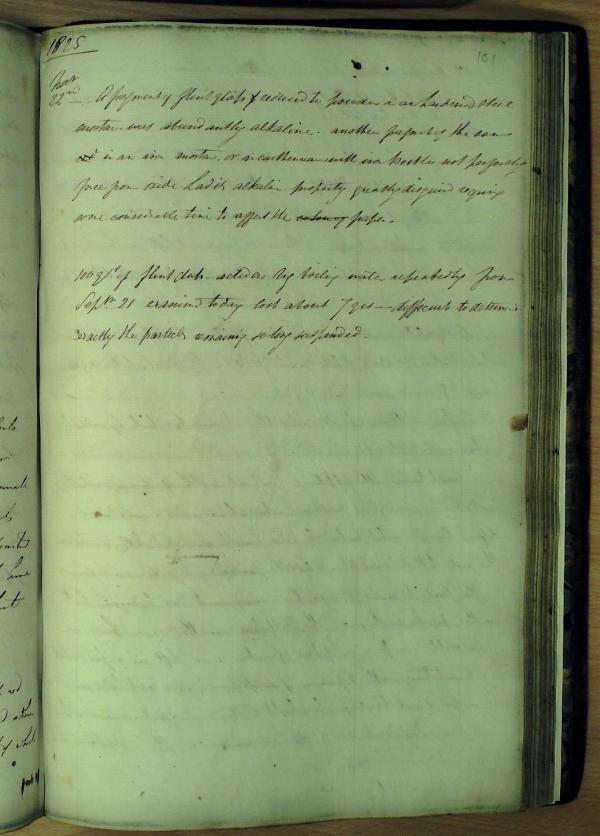 1825
101
Novr
22nd
A fragment of flint glass reduced to powder in a hardened steel
mortar was abundantly alkaline. another fragment of the same
in an iron mortar, or in earthenware with iron pestle not perfectly
free from oxide had its alkaline property greatly disguised requiring
some considerable time to affect the colour of paper.
100 grs of flint acted on by boiling water repeatedly from
Septr 21 examined today lost about 7 grs — difficult to determine
exactly the particles remaining so long suspended.